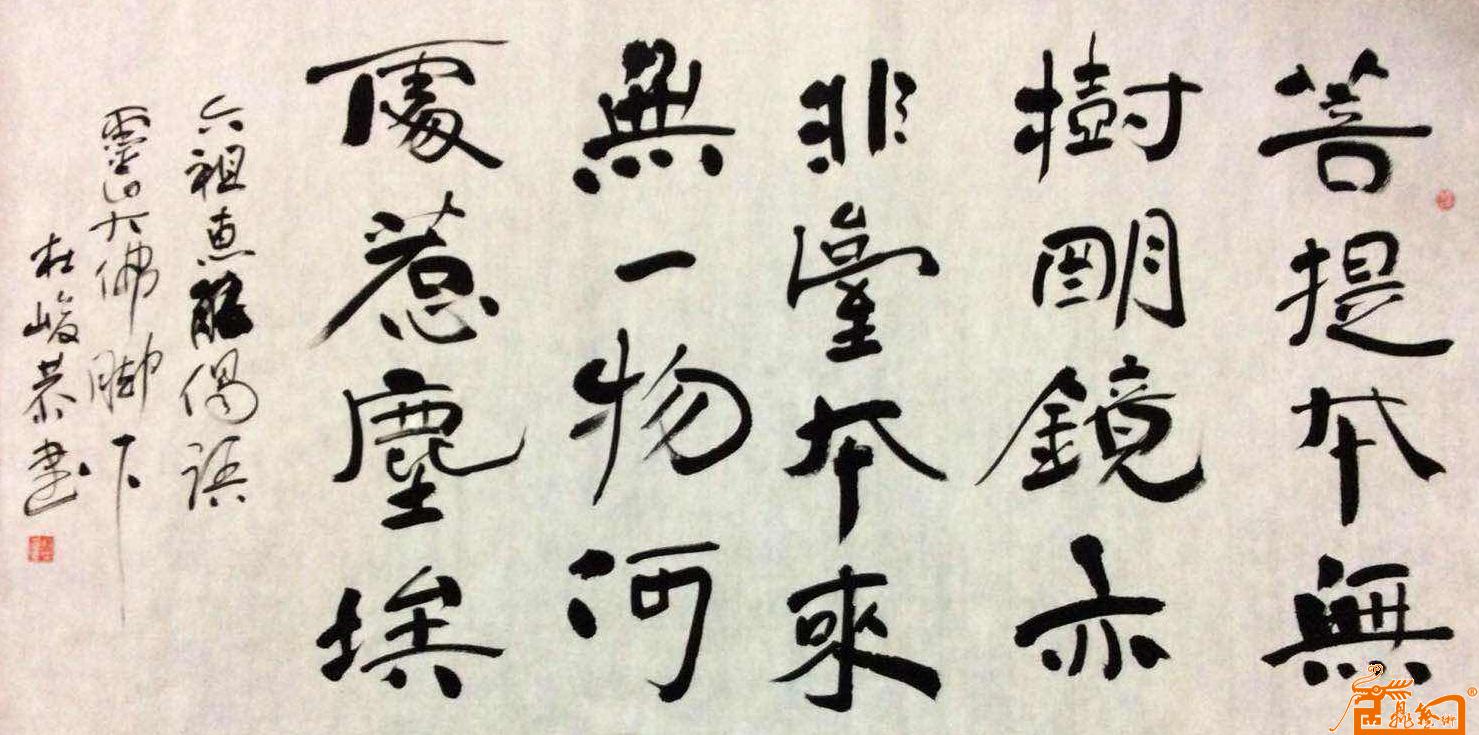 菩提本無
樹明鏡亦
非臺本來
無一物河
處惹塵埃
六祖惠能偈語
靈山大佛脚下
杜峻恭書